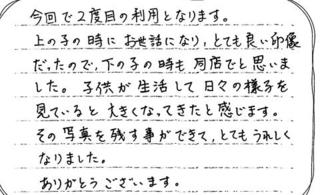 今回で2度目の利用となります。
上の子の時にお世話になり、とても良い印象
だったので、下の子の時も同店でと思いま
した。子供が生活して日々の様子を
見ていると大きくなってきたと感じます。
その写真を残す事ができて、とてもうれしく
なりました。
ありがとうございます。